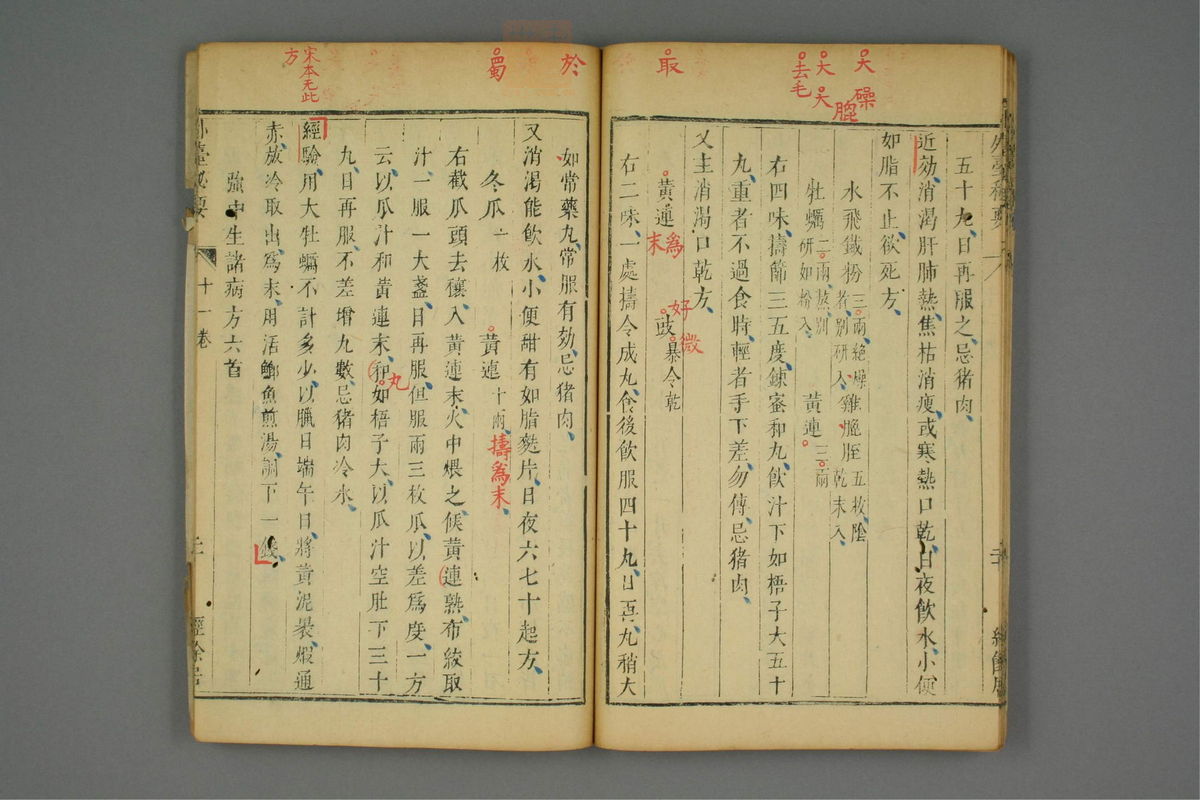 於
最
大
燥
膍
大
大
去毛
外臺秘要
五十九日再服之忌猪肉
近効消渴肝肺熱焦枯消瘦或寒熱口乾日夜飲水小便
如脂不止欲死方
水飛鐵粉三兩絕燥者別研入
雞膍胵五枚陰乾末入
牡蠣二兩熬別研如粉入
黃連三兩
右四味擣篩三五度鍊蜜和丸飲汁下如梧子大五十
九重者不過食時輕者手下差勿傳忌猪肉
又主消渴口乾方
黃連
爲末
豉暴令乾
好
微
右二味一處擣令成丸食後飲服四十九日再丸稍大
蜀
宋本无此方
如常藥丸常服有効忌猪肉
又消渴能飲水小便甜有如脂麩片日夜六七十起方
冬瓜一枚
黃連十兩
擣爲末
右截瓜頭去穰入黃連末火中煨之候黃連熟布絞取
汁一服一大盞日再服但服兩三枚瓜以差爲度一方
云以瓜汁和黃連末和如梧子大以瓜汁空肚下三十
丸
九日再服不差增九數忌猪肉冷水
經驗用大牡蠣不計多少以臘日端午日將黃泥裹煅通
赤放冷取出爲末用活鯽魚煎湯調下一錢
強中生諸病方六首
十一卷
經餘居